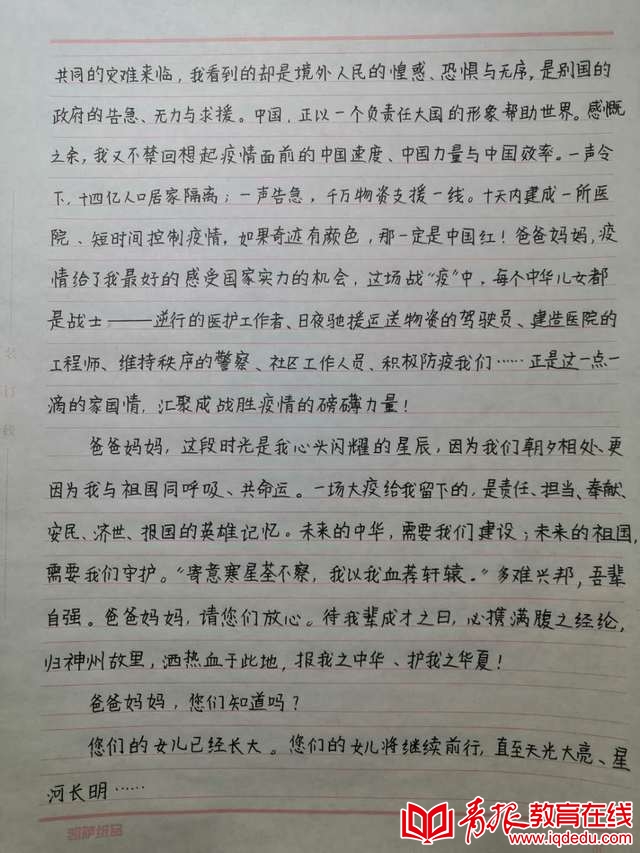 共同的灾难来临，我看到的却是境外人民的惶惑、恐惧与无序，是别国的
政府的告急、无力与求援。中国，正以一个负责任大国的形象帮助世界。感慨
之余，我又不禁回想起疫情面前的中国速度、中国力量与中国效率。一声令
下，十四亿人口居家隔离；一声告急，千万物资支援一线。十天内建成一所医
院、短时间控制疫情，如果奇迹有颜色，那一定是中国红！爸爸妈妈，疫
情给了我最好的感受国家实力的机会，这场战“疫”中，每个中华儿女都
是战士——逆行的医护工作者、日夜驰援运送物资的驾驶员、建造医院的
工程师、维持秩序的警察、社区工作人员、积极防疫我们……正是这一点一
滴的家国情，汇聚成战胜疫情的磅礴力量！
爸爸妈妈，这段时光是我心头闪耀的星辰，因为我们朝夕相处、更
因为我与祖国同呼吸、共命运。一场大疫给我留下的，是责任、担当、奉献、
安民、济世、报国的英雄记忆。未来的中华，需要我们建设；未来的祖国，
需要我们守护。“寄意寒星荃不察，我以我血荐轩辕。”多难兴邦，吾辈
自强。爸爸妈妈，请您们放心。待我辈成才之日，必携满腹之经纶，
归神州故里，洒热血于此地，报我之中华、护我之华夏！
爸爸妈妈，您们知道吗？
您们的女儿已经长大。您们的女儿将继续前行，直至天光大亮、星
河长明……
装
订
线
青报教育在线
www.iqdedu.com